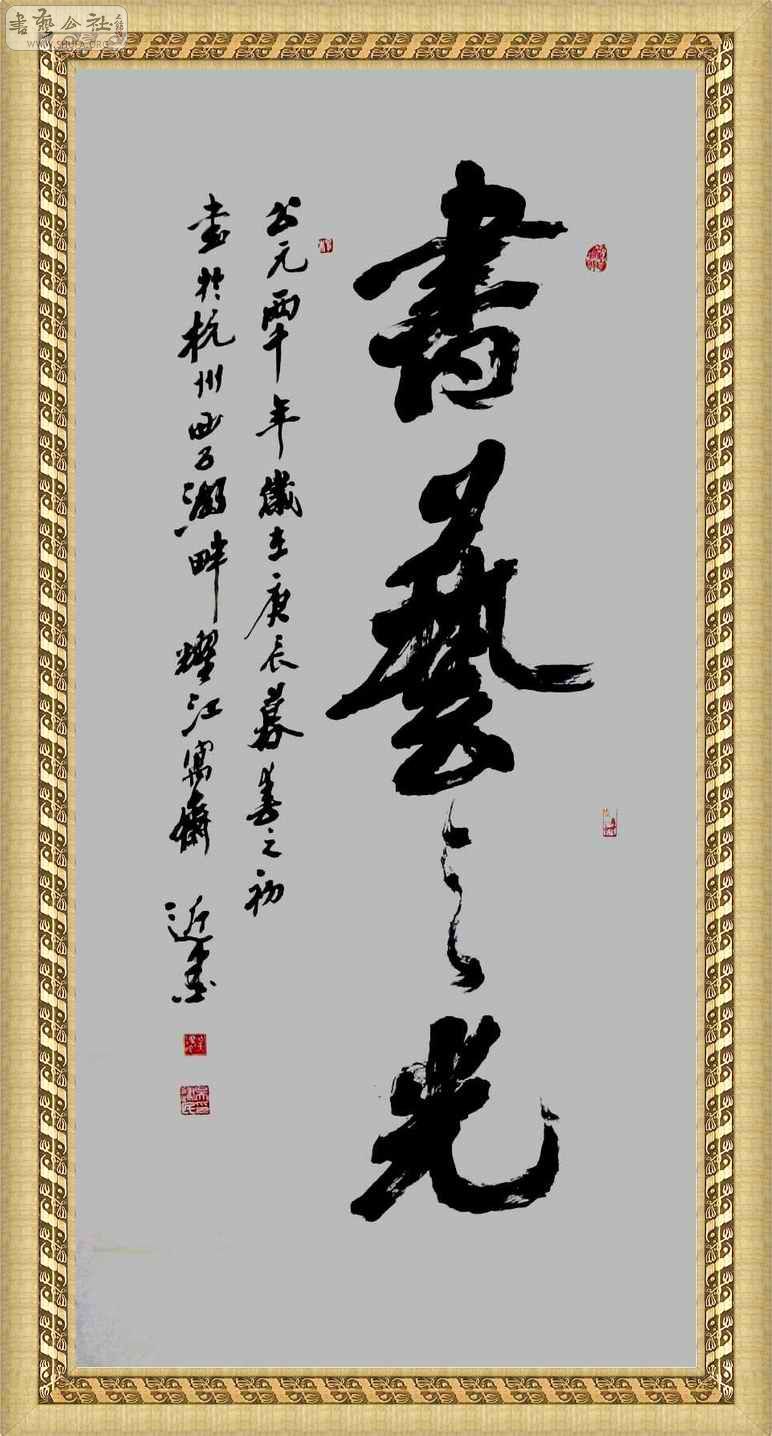 書藝公社
WWW.SHUFA.ORG
書藝之光
公元兩千年歲在庚辰暮春之初
書於杭州西子湖畔耀江寓齋 近